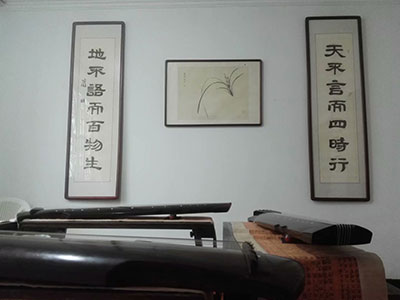 天不言而四時行
地不語而百物生